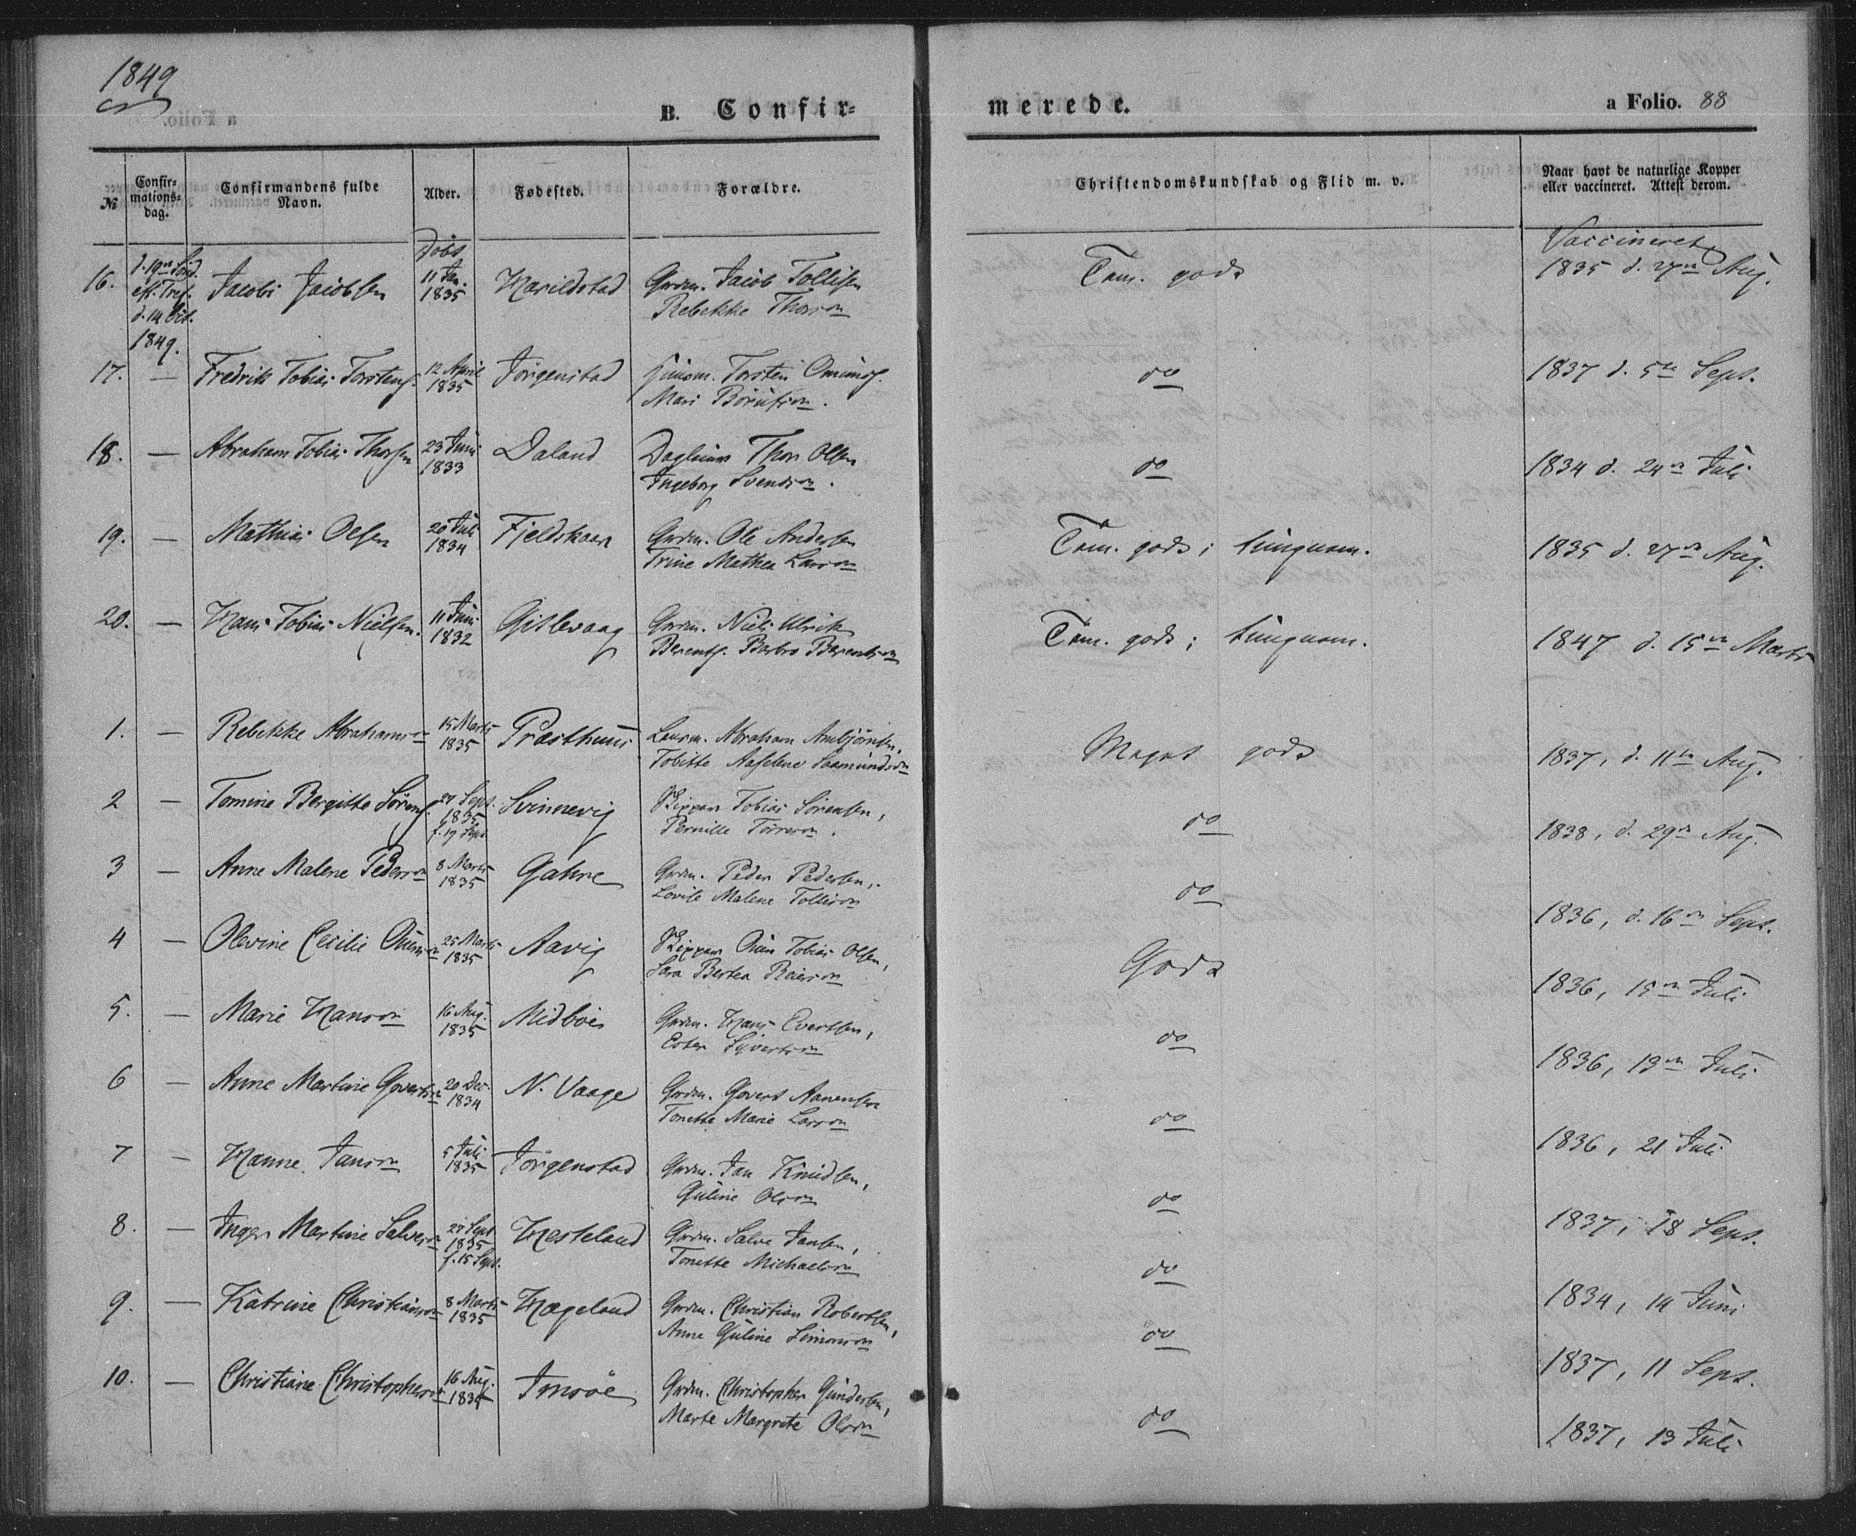 1849
B. Confir-
merede.
a Folio. 88
№
Confir-
mations-
dag.
Confirmandens fulde
Navn.
Alder.
Fødested.
Forældre.
Christendomskundskab og Flid m. v.
Naar havt de naturlige Kopper
eller vaccineret. Attest derom.
Døbt
Vaccineret
16. d. 19de Sønd. eft. Tref. d. 14 Oct. 1849. Jacob Jacobsen 11 Jan. 1835 Harildstad Grdm. Jacob Tollisen
Rebekke Thorsen
Tem. godt
1835 d. 27de Aug.
17. — Fredrik Tobias Torstens. 12 April 1835 Jørgenstad Torsten
Mari
do
1837 d. 5te Sept.
18. — Abraham Tobias Thorsen 23 Juni 1833 Daland Thor Olsen
Ingeborg Svendsen.
do
1834 d. 24de Juli
19. — Mathias Olsen 20 Juli 1834 Fjeldskaar Grdm. Ole Andersen
Trine Mathea Larsen
Tem. godt; tungnem.
1835 d. 27de Aug.
20. — Hans Tobias Nielsen. 11 Juni 1832 Gitlevaag Grdm. Niels Ulrik
Berents. Barbro Berentsen
Tem. godt; tungnem.
1847 d. 15de Marts
1. — Rebekke Abrahamsen 15 Marts 1835 Præsthuus Abraham Anbjørnsen,
Tobitte Aaselene Saamundsen
Meget godt
1837, d. 11te Aug.
2 — Tomine Bergitte Sørens. 27 Sept. 1835 f. 19 Sept. Svinnevig Skipper Tobias Sørensen,
Pernille Torresen.
do
1838, d. 29de Aug.
3 — Anne Malene Pedersen 8 Marts 1835 Gahre Grdm. Peder Pedersen,
Lovise Malene Tollisen
do
1836, d. 16de Sept.
4 — Olevine Cecilie Ouensen 25 Marts 1835 Aavig Skipper Ouen Tobias Olsen,
Sara Bertea Reiersen
Godt
1836, 15de Juli
5. — Marie Hansen 16 Aug. 1835 Midbøe Grdm. Hans Evertsen,
Ester Sivertsen
do
1836, 13de Juli
6 — Anne Martine Govertsen 20 Dec. 1834 N. Vaage Grdm. Govert Aanensen
Tonette Marie Larsen
do
1836, 21 Juli
7 — Hanne Jansen 5 Juli 1835 Jørgenstad Grdm. Jan Knudsen,
Guline Olsen
do
1837, 18 Sept.
8. — Inger Martine Salvesen 27 Sept. 1835 f. 15 Sept. Hesteland Grdm. Salve Jansen,
Tonette Michaelsen
do
1834, 14 Juni
9. — Katrine Christiansen 8 Marts 1835 Hageland Grdm. Christian Robertsen,
Anne Guline Simonsen
do
1837, 11 Sept.
10. — Christiane Christophersen 16 Aug. 1834 Imsøe Grdm. Christopher Gundersen,
Marte Margrete Olsen
do
1837, 13 Juli